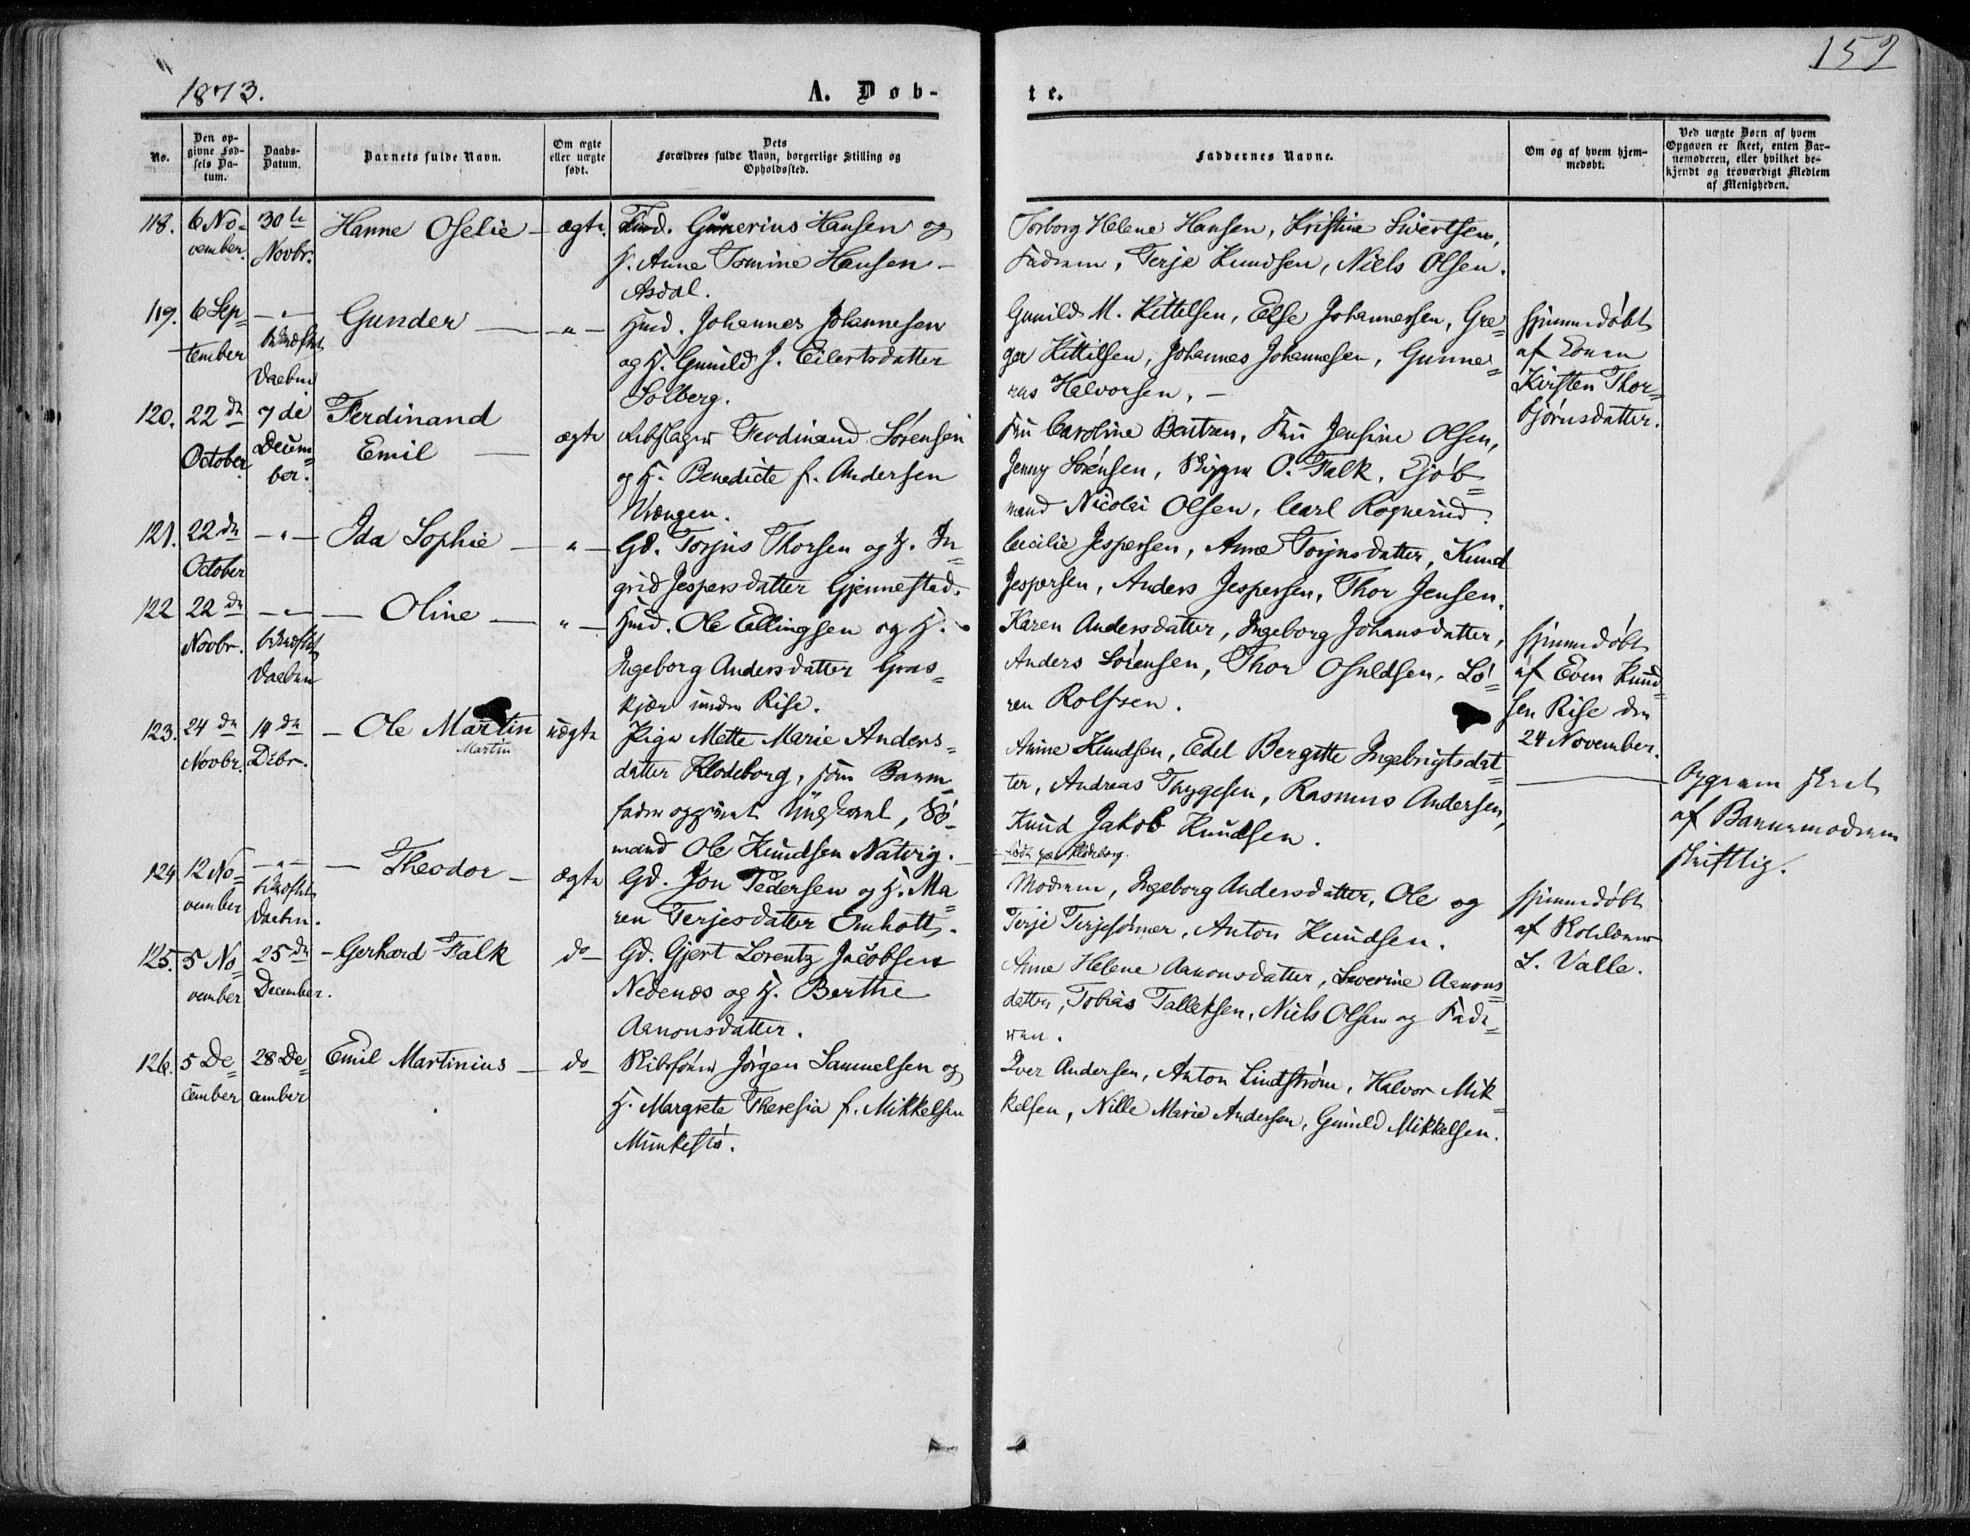 159
1873.
A. Døb-
te.
No.
Den op-
givne Fød-
sels Da-
tum.
Daabs-
Datum.
Barnets fulde Navn.
Om ægte
eller uægte
født.
Dets
Forældres fulde Navn, borgerlige Stilling og
Opholdssted.
Faddernes Navne.
Om og af hvem hjem-
medøbt.
Ved uægte Børn af hvem
Opgaven er skeet, enten Bar-
nemoderen, eller hvilket be-
kjendt og troværdigt Medlem
af Menigheden.
118.
6 No-
vember.
30te
Novbr.
Hanne Oselie
ægte.
Gunerius Hansen og
H. Anne Tomine Hansen
Asdal.
Torborg Helene Hansen, Kristine Sivertsen,
Faderen, Terje Knudsen, Niels Olsen.
119.
6 Sep-
tember
- " -
bekræftet
Daaben
Gunder
- " -
Huusmd. Johannes Johannesen
og H. Gunild J. Eilertsdatter
Solberg.
Gunild M. Kittelsen, Else Johannessen, Gre-
ger Kittilsen, Johannes Johannesen, Gunne-
rus Halvorsen, -
Hjemmedøbt
af Konen
Kirsten Thor-
bjørnsdatter.
120.
22de
October
7de
Decem-
ber.
Ferdinand
Emil
ægte
Rebslager Ferdinand Sørensen
og H. Benedicte f. Andersen
Vrengen.
Fru Caroline Berntzen, Fru Jensine Olsen,
Jenny Sørensen, Skipper O. Falk, Kjøb-
mand Nicolai Olsen, Carl Rognerud.
121.
22de
October
- " -
Ida Sophie
- " -
Gd. Torjus Thorsen og H. In-
grid Jespersdatter Gjennestad.
Cecilie Jespersen, Anne Torjusdatter, Knud
Jespersen, Anders Jespersen, Thor Jensen.
122
22de
Novbr.
- " -
bekræftet
Daaben
Oline
- " -
Huusmd. Ole Ellingsen og H.
Ingeborg Andersdatter Gras-
kjær under Rise.
Karen Andersdatter, Ingeborg Johansdatter,
Anders Sørensen, Thor Osuldsen, Sø-
ren Rolfsen.
Hjemmedøbt
af Even Knud-
sen Rise den
24 November.
123.
24de
Novbr.
14de
Debr.
Ole Martin
Martin
uægte
Pige Mette Marie Anders-
datter Klodeborg, som Barne-
fader opgivet Ungkarl, Sø-
mand Ole Knudsen Natvig.
Anne Knudsen, Edel Bergitte Ingebrigtsdat-
ter, Andreas Thygesen, Rasmus Andersen,
Knud Jakob Knudsen.
født paa Klodeborg.
Opgaven skeet
af Barnemoderen
skriftlig.
124
12 No-
vember
- " -
bekræftet
Daaben.
Theodor
ægte
Gd. Jon Pedersen og H. Ma-
ren Terjesdatter Omholt.
Moderen, Ingeborg Andersdatter, Ole og
Terje Terjesønner, Anton Knudsen.
Hjemmedøbt
af Skolelærer
S. Valle.
125.
5 No-
vember
25de
December.
Gerhard Falk
do
Gd. Gjert Lorentz Jacobsen
Nedenes og H. Berthe
Aanonsdatter.
Anne Helene Aanonsdatter, Severine Aanons-
datter, Tobias Talleksen, Niels Olsen og Fade-
ren.
126.
5 De-
cember
28 De-
cember
Emil Martinius
do
Skibsfører Jørgen Samuelsen og
H. Margrete Theresia f. Mikkelsen
Munkestø.
Iver Andersen, Anton Lindstrøm, Halvor Mik-
kelsen, Nille Marie Andersen, Gunild Mikkelsen.